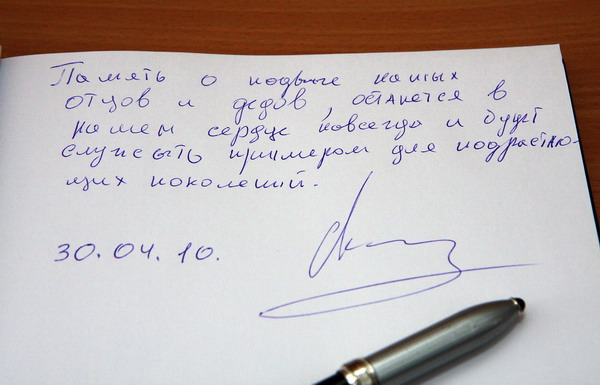 Память о подвиге наших
отцов и дедов, останется в
нашем сердце навсегда и будет
служить примером для подрастаю-
щих поколений.
30.04.10.